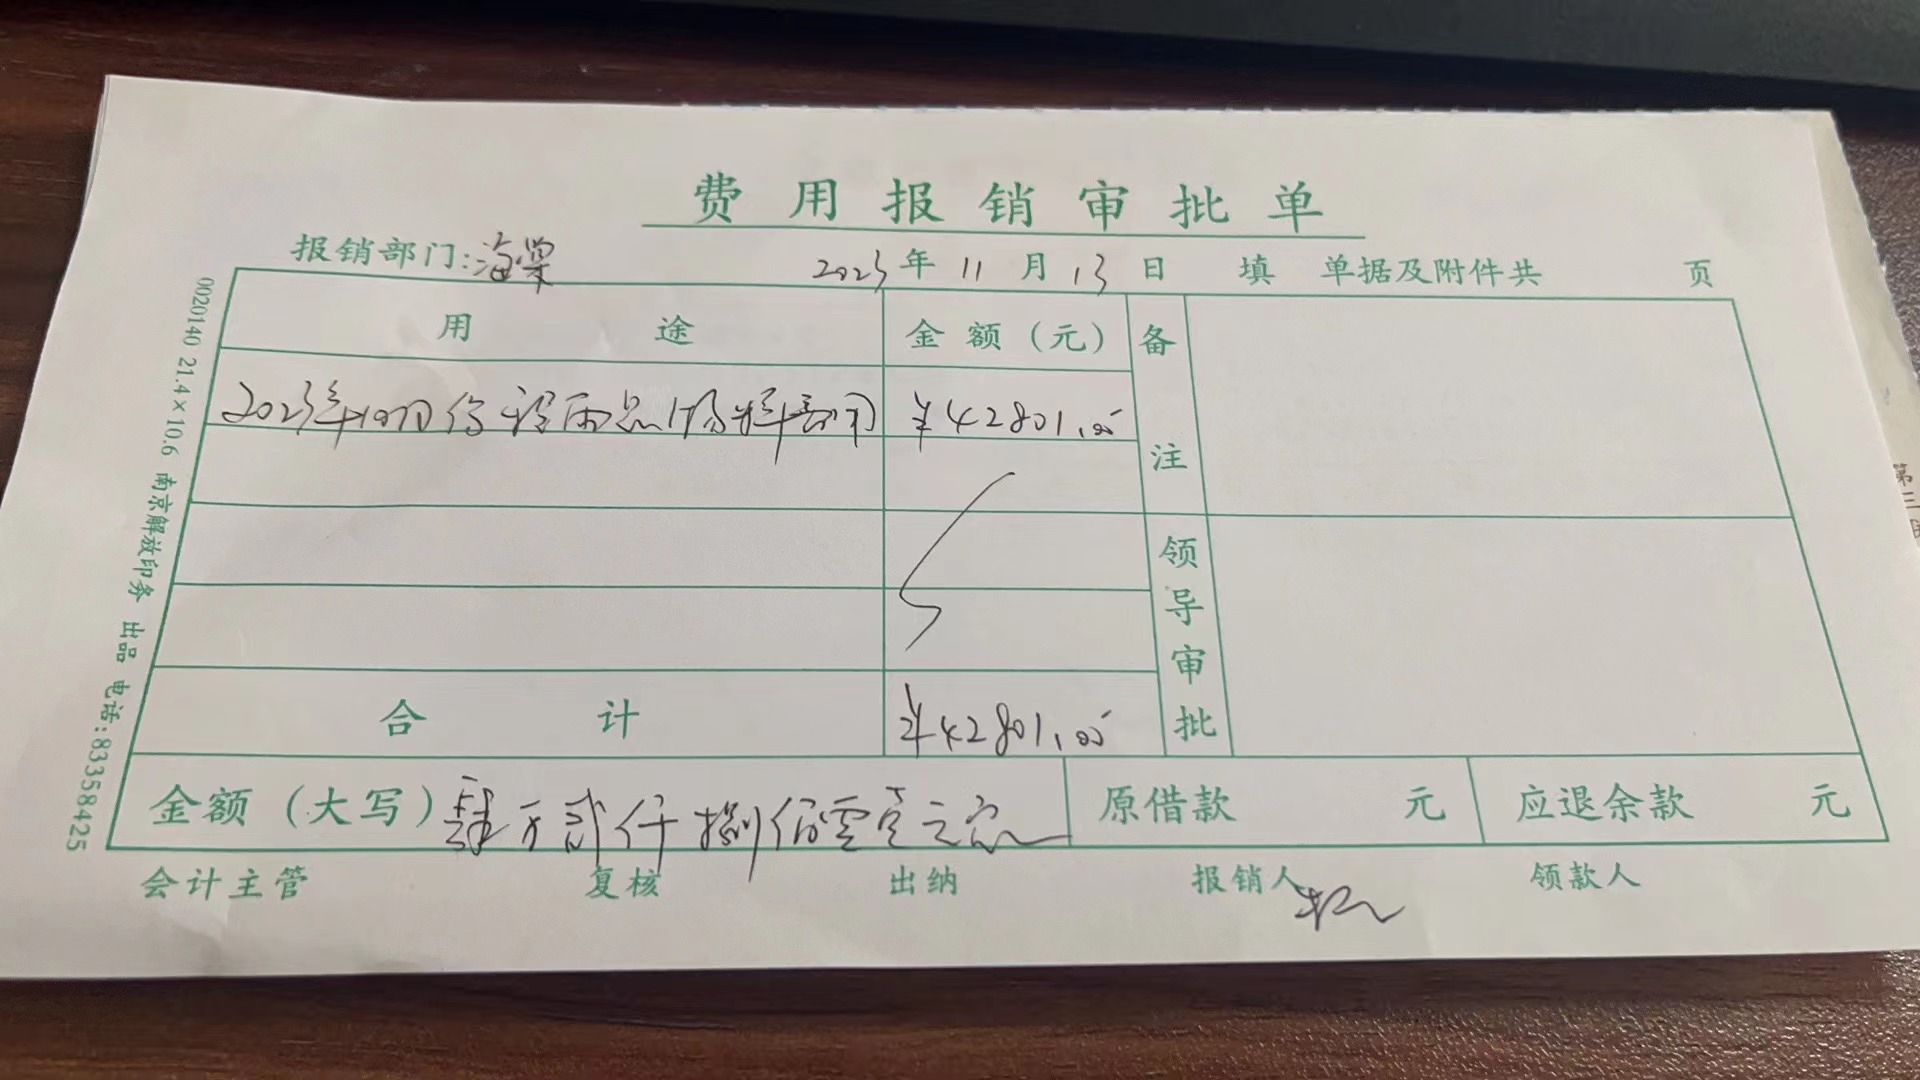 费用报销审批单
报销部门:海棠 2023年11月13日 填 单据及附件共 页
用途 金额(元) 备注
2023年10月份 ¥42801.00
领导审批
合计 ¥42801.00
金额(大写)肆万贰仟捌佰零壹元 原借款 元 应退余款 元
会计主管 复核 出纳 报销人 领款人
0020140 21.4×10.6 南京解放印务 出品 电话:83358425
第三